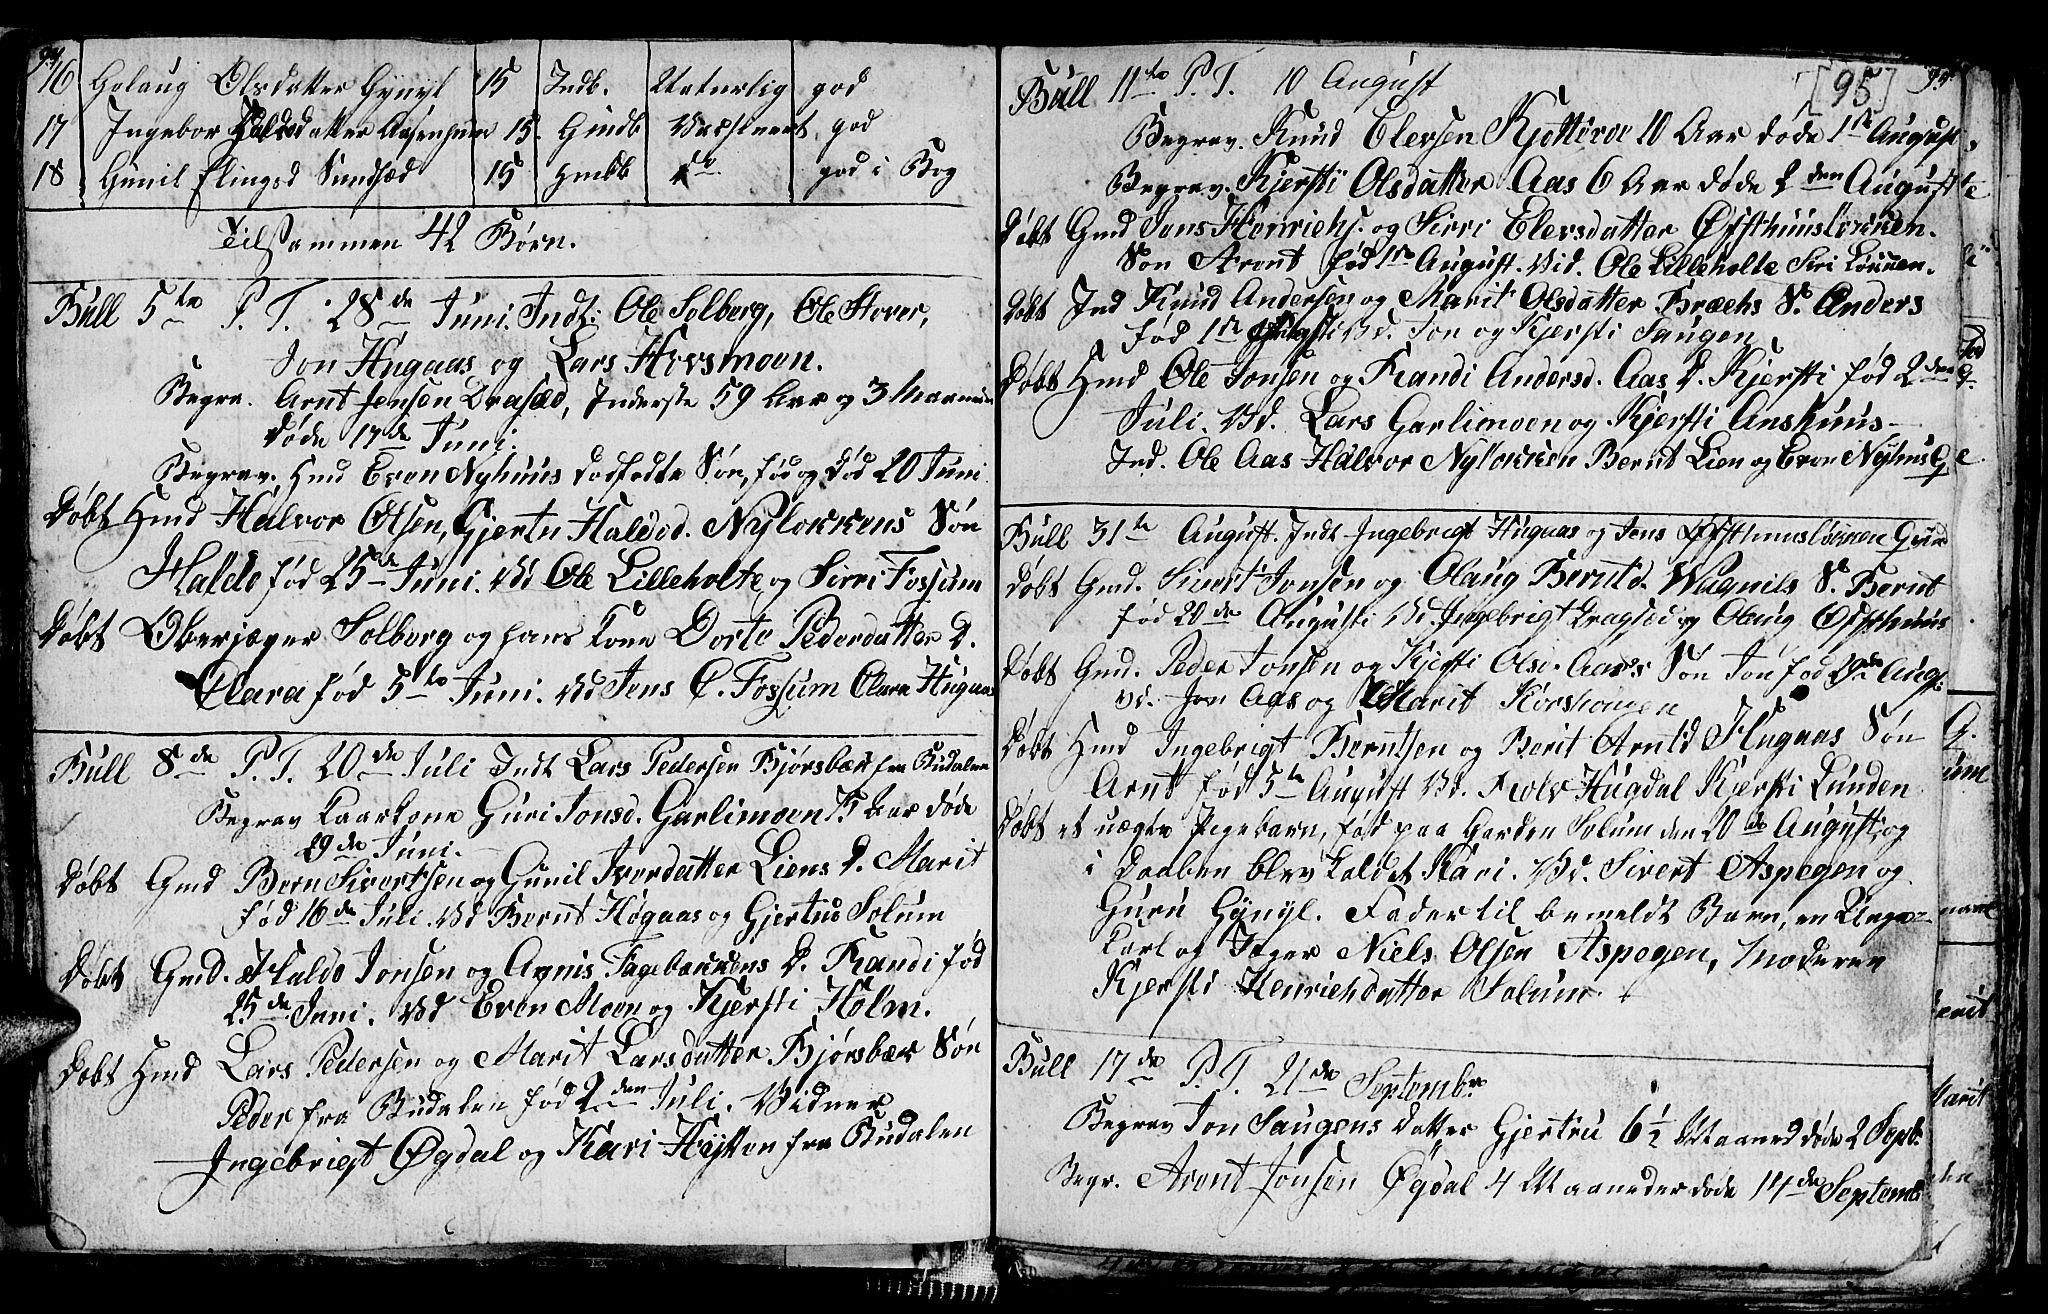 94
16 Golaug Olsdatter Gynyl 15 Indb. Naturlig god
17 Ingebor datter Aasenhuus 15. Gindb Vaxineert god
18 Gunil Elingsd Sundsæd 15 Hmbb do god i Bog
Tilsammen 42 Børn.
Bull 5te P. T. 28de Juni. Indt: Ole Solberg, Ole Stover,
Jon Hugaas og Lars Horsmoen.
Begra. Arnt Jensen Dragsæd, Inderste 59 Aar og 3 Maaneder
døde 17de Juni.
Begrav. Hmd Even Nyhuus dødfødte Søn, fød og død 20 Juni
Døbt Hmd Halvor Olsen, Gjertru Haldod. Nyløkkens Søn
Haldo fød 25de Juni. Vid Ole Lilleholte og Sirri Fossum
Døbt Oberjæger Solberg og hans Kone Dorte Pedersdatter D.
Clara fød 5te Juni. Vid Jens C. Fossum Clara Hugaas
Bull 8de P. T. 20de Juli Indt Lars Pedersen Bjørsbæk fra Budalen
Begrav Kaarkone Guri Jonsd. Garlimoen Aar døde
29de Juni.
Døbt Gmd Bern Sivertsen og Gunil Iversdatter Liens D. Marit
fød 16de Juli. Vid Bernt Høgaas og Gjertrud Solum
Døbt Gmd. Haldo Jonsen og Agnis Fagebakkens D. Randi fød
25de Juni. Vid Even Moen og Kjersti Holm.
Døbt Hmd Lars Pedersen og Marit Larsdatter Bjørsbæk Søn
Peder fra Budalen fød 2den Juli. Vidner
Ingebrigt Øgdal og Kari Hejtton fra Budalen
[95] 95
Bull 11te P. T. 10 August
Begrav. Knud Elevsen Kjøtterøe 10 Aar døde 1ste August
Begrav. Kjersti Olsdatter Aas 6 Aar døde 2den August
Døbt Gmd Jens Henrichs. og Sirri Elevsdatter Øfsthuusløkken.
Søn Arent fød 1ste August. Vid. Ole Lilleholte Siri Løkken.
Døbt Ind Knud Andersen og Marit Olsdatter Bræchs S. Anders
fød 1ste Augusti Vid. Jon og Kjersti Saugen
Døbt Hmd Ole Jonsen og Randi Andersd. Aas D. Kjersti fød 2den
Juli. Vid. Lars Garlimoen og Kjersti Aashuus
Ind. Ole Aas Halvor Nyløkken Bernt Lien og Even Nyhus
Bull 31te August. Indt Ingebrigt Hugaas og Jens Øfsthuusløkken
Døbt Gmd. Sivert Jonsen og Olaug Berntd. Wagnils S. Bernt
fød 20de Augusti Vid. Ingebrigt Dragsæd og Olaug Øfsthuus
Døbt Gmd. Peder Jonsen og Kjersti Olsd. Aases Søn Jon fød 29de Aug:
Vd. Jon Aas og Marit Korshaugen
Døbt Hmd Ingebrigt Berntsen og Berit Arntd Hugaas Søn
Arnt fød 5te August Vd. Rolv Hugdal Kjersti Lunden
Døbt et uægte Pigebarn, fød paa Gaarden Solum den 20de August, og
i Daaben blev kaldet Kari. Vd. Sivert Aspegen og
Guru Gynyl. Fader til bemeldt Barn, en Unge-
karl og Jæger Niels Olsen Aspegen, Moderen
Kjersti Henrichsdatter Solum.
Bull 17de P. T. 21de Septembr.
Begrav Jon Saugens Datter Gjertru 6½ Maaned døde 2 Septb.
Begr. Arent Jonsen Øgdal 4 Maaneder døde 14de Septemb